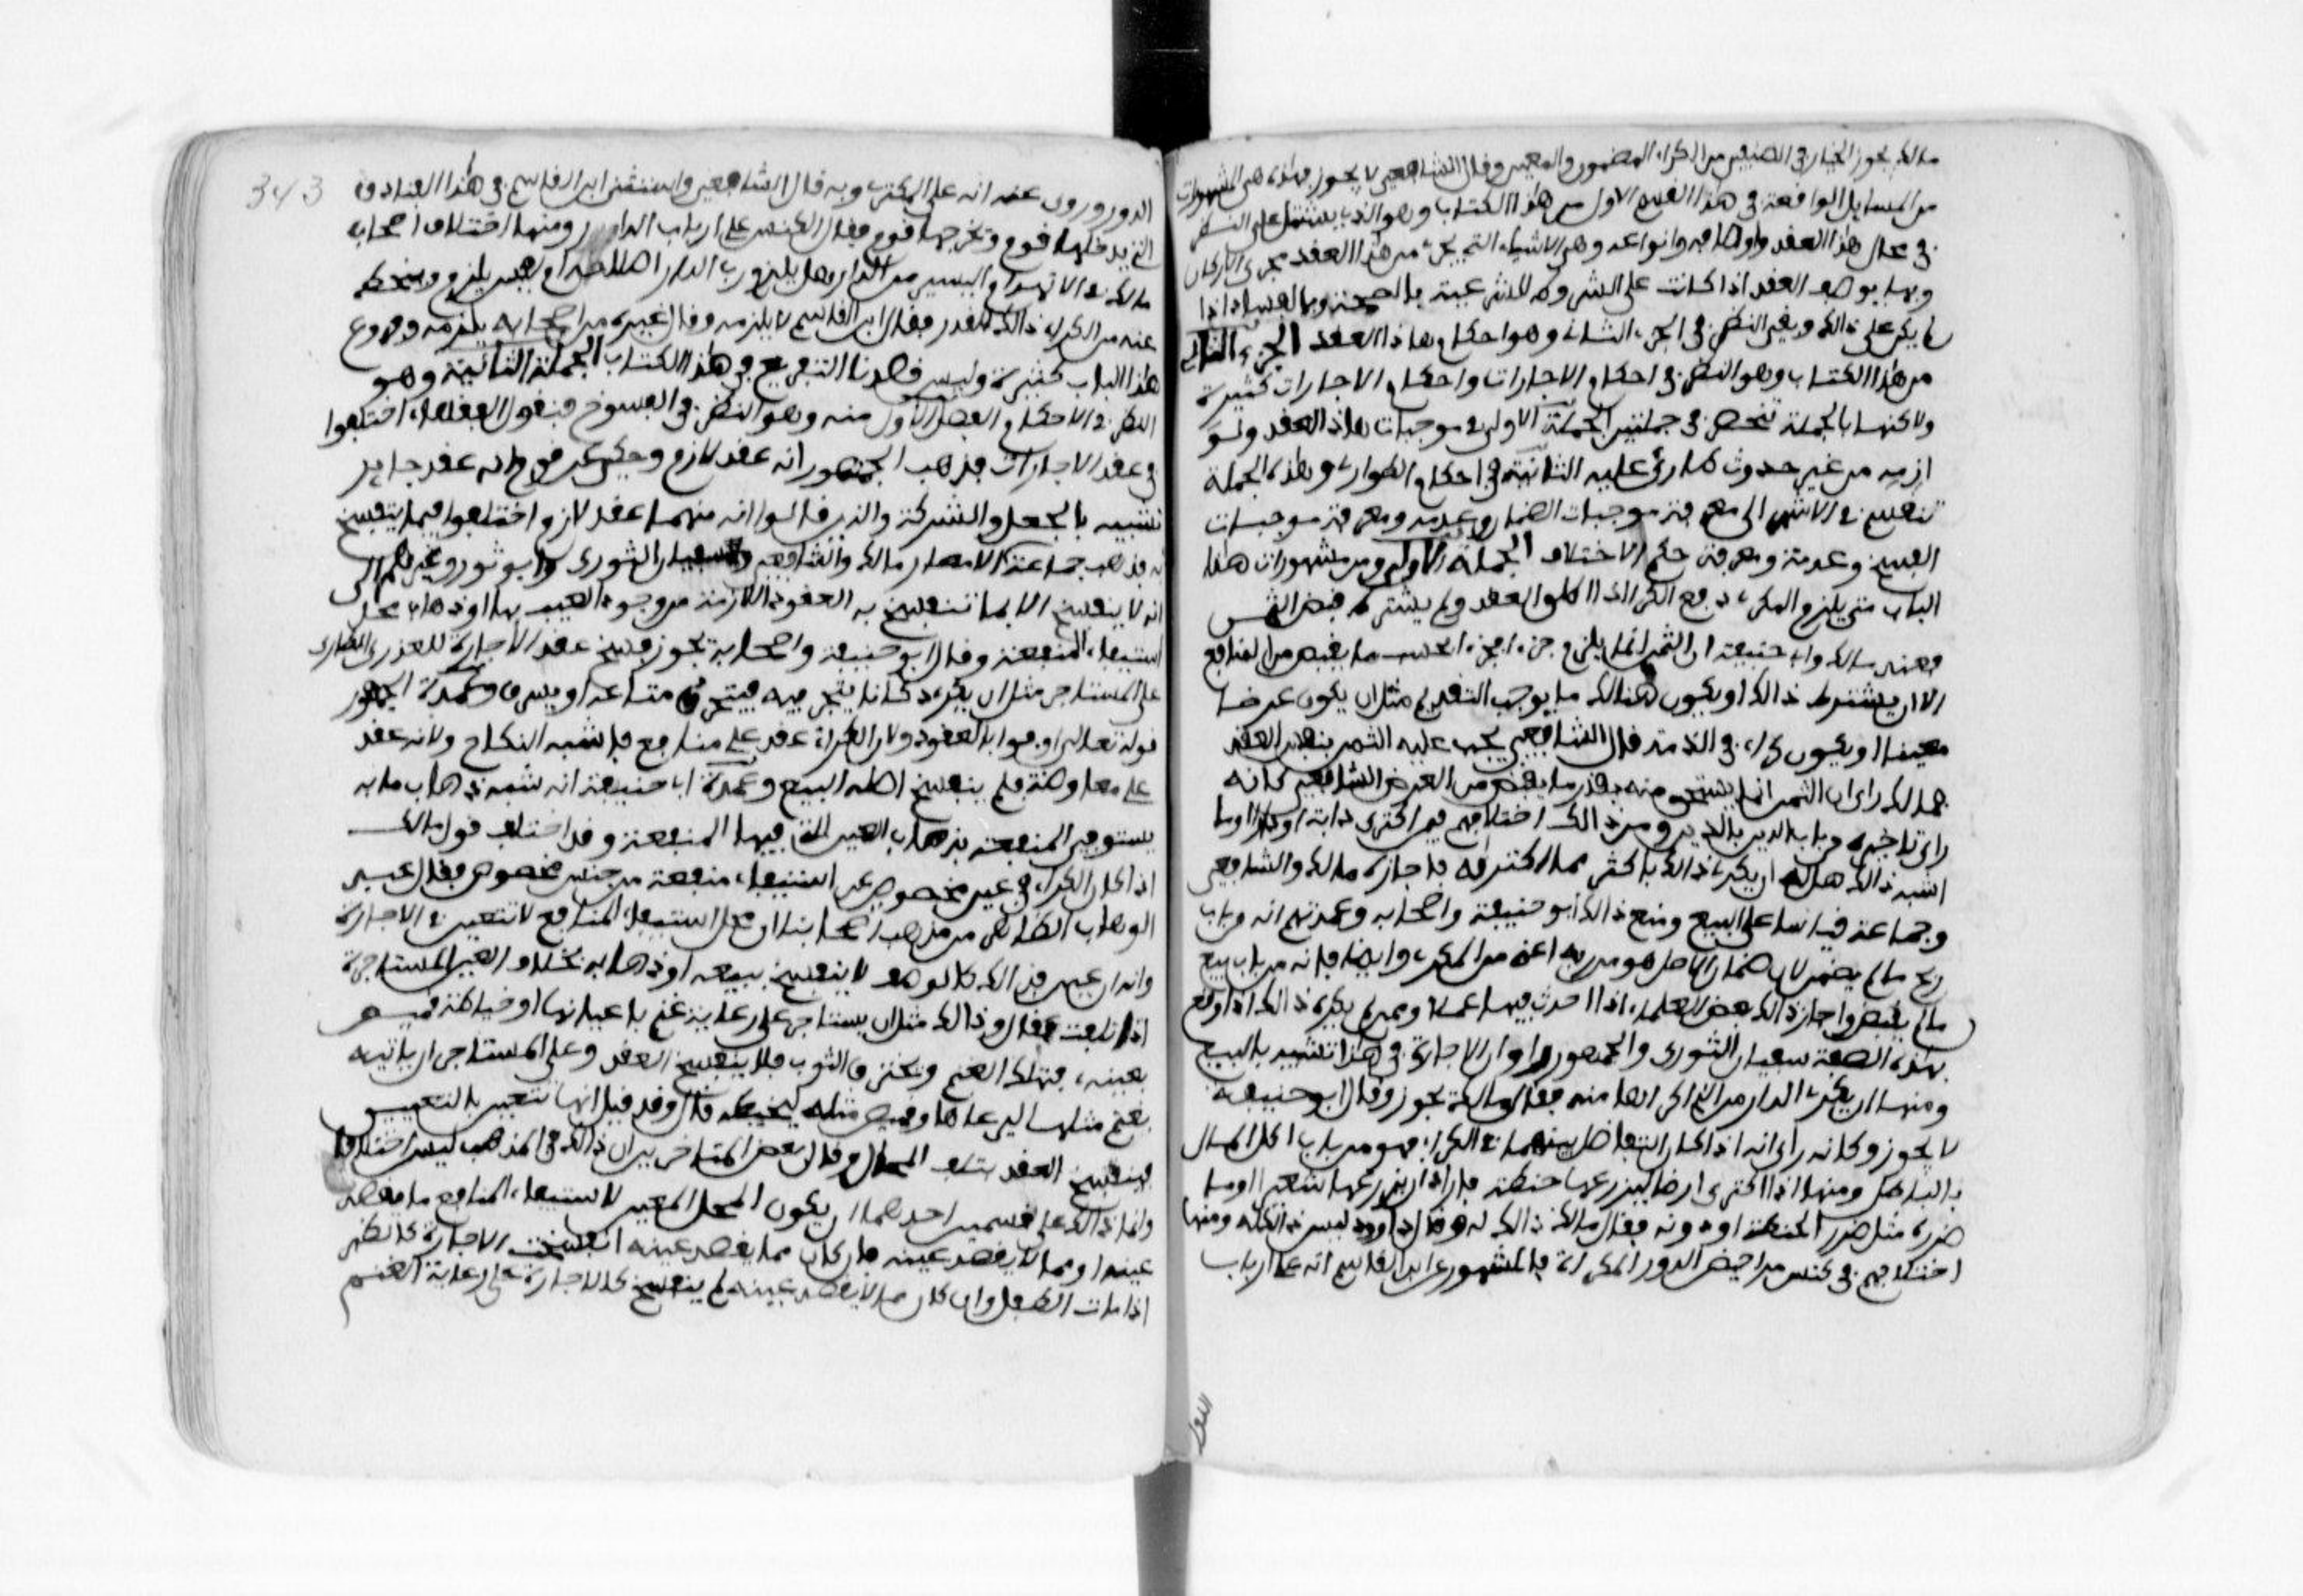 مالك يجوز الخيار في الصنفين من الكراء المضمون والمعين وقال الشافعي لا يجوز فهذه هي المشهورات
من المسايل الواقعة في هذا القسم الاول من هذا الكتاب وهو الذي يشتمل على النظر
في محال هذا العقد واوصافه وانواعه وهي الاشياء التي تجري من هذا العقد مجرى الاركان
وبها يوصف العقد اذا كانت على الشروط الشرعية بالصحة وبالفساد اذا
لم يكن على ذالك وبقي النظر في الجزء الثاني وهو احكام هاذا العقد الجزء الثاني
من هذا الكتاب وهو النظر في احكام الاجارات واحكام الاجارات كثيرة
ولاكنها بالجملة تنحصر في جملتين الجملة الاولى في موجبات هاذا العقد ولو
ازمه من غير حدوث طارئ عليه الثانية في احكام الطوارئ وهذه الجملة
تنقسم في الاشهر الى معرفة موجبات الضمان وعدمه ومعرفة موجبات
الفسخ وعدمه ومعرفة حكم الاختلاف الجملة الاولى ومن مشهورات هذا
الباب متى يلزم المكري دفع الكراء اذا اطلق العقد ولم يشترط قبض الثمن
فعند مالك وابي حنيفة ان الثمن انما يلزم جزءا فجزءا بحسب ما يقبض من المنافع
الا ان يشترط ذالك او يكون هنالك ما يوجب التقديم مثل ان يكون عرضا
معينا او يكون كراء في الذمة وقال الشافعي يجب عليه الثمن بنفس العقد
فمالك راى ان الثمن انما يستحق منه بقدر ما يقبض من العوض والشافعي كانه
راى تاخيره من باب الدين بالدين ومن ذالك اختلافهم فيمن اكترى دابة او دارا وما
اشبه ذالك هل له ان يكري ذالك باكثر مما اكتراه فاجازه مالك والشافعي
وجماعة قياسا على البيع ومنع ذالك ابو حنيفة واصحابه وعمدتهم انه من باب
ربح ما لم يضمن لان ضمان الاصل هو من ربه اعني من المكري وايضا فانه من باب بيع
ما لم يقبض واجاز ذالك بعض العلماء اذا احدث فيها عملا وممن لم يكره ذالك اذا وقع
بهذه الصفة سفيان الثوري والجمهور راوا ان الاجارة في هذا تشبيه بالبيع
ومنها ان يكري الدار من الذي اكراها منه فقال مالك يجوز وقال ابو حنيفة
لا يجوز وكانه راى انه اذا كان التفاضل بينهما في الكراء فهو من باب اكل المال
بالباطل ومنها اذا اكترى ارضا ليزرعها حنطة فاراد ان يزرعها شعيرا او ما
ضرره مثل ضرر الحنطة او دونه فقال مالك ذالك له وقال داوود ليس ذالك له ومنها
اختلافهم في كنس مراحيض الدور المكراة فالمشهور عن ابن القاسم انه على ارباب
الدور
الدور وروي عنه انه على المكتري وبه قال الشافعي واستثنى ابن القاسم في هذا الفنادق
التي يدخلها قوم وتخرجها قوم فقال الكنس على ارباب الدور ومنها اختلاف اصحاب
مالك في الانهدام اليسير من الدار هل يلزم رب الدار اصلاحه او ليس يلزم وينحط
عنه من الكراء ذالك القدر فقال ابن القاسم لا يلزمه وقال غيره من اصحابه يلزمه وفروع
هذا الباب كثيرة وليس قصدنا التفريع في هذا الكتاب الجملة الثانية وهو
النظر في الاحكام الفصل الاول منه وهو النظر في الفسوخ فنقول الفقهاء اختلفوا
في عقد الاجارات فذهب الجمهور انه عقد لازم وحكي عن قوم انه عقد جايز
تشبيه بالجعل والشركة والذين قالوا انه منهما عقد لازم اختلفوا فيما ينفسخ
به فذهب جماعة الامصار مالك والشافعي وسفيان الثوري وابو ثور وغيرهم الى
انه لا ينفسخ الا بما تنفسخ به العقود اللازمة من وجود العيب بها او ذهاب محل
استيفاء المنفعة وقال ابو حنيفة واصحابه يجوز فسخ عقد الاجارة للعذر الطارئ
على المستاجر مثل ان يكري دكانا يتجر فيه فيحترق متاعه او يسرق وعمدة الجمهور
قوله تعالى اوفوا بالعقود ولان الكراء عقد على منافع فاشبه النكاح ولانه عقد
على معاوضة فلم ينفسخ اصله البيع وعمدة ابا حنيفة انه شبه ذهاب ما به
يستوفى المنفعة بذهاب العين التي فيها المنفعة وقد اختلف قول مالك
اذا كان الكراء في غير مخصوص على استيفاء منفعة من جنس مخصوص فقال عبد
الوهاب الظاهر من مذهب اصحابنا ان محل استيفاء المنافع لا تتعين في الاجارة
وانه ان عين فذالك كالوصف لا ينفسخ ببيعه او ذهابه بخلاف العين المستاجرة
اذا تلفت فقال وذالك مثل ان يستاجر على رعاية غنم باعيانها او خياطة قميص
بعينه فتهلك الغنم ويحترق الثوب فلا ينفسخ العقد وعلى المستاجر ان ياتيه
بغنم مثلها ليرعاها وقميص مثله ليخيطه قال وقد قيل انها تتعين بالتعيين
فينفسخ العقد بتلف المحال وقال بعض المتاخرين ان ذالك في المذهب ليس اختلافا
وانما ذالك على قسمين احدهما ان يكون المحل المعين لاستيفاء المنافع ما يقصد
عينه او مما لا يقصد عينه فان كان مما يقصد عينه انفسخت الاجارة كالظئر
اذا مات الطفل وان كان مما لا يقصد عينه لم ينفسخ كالاجارة على رعاية الغنم
343